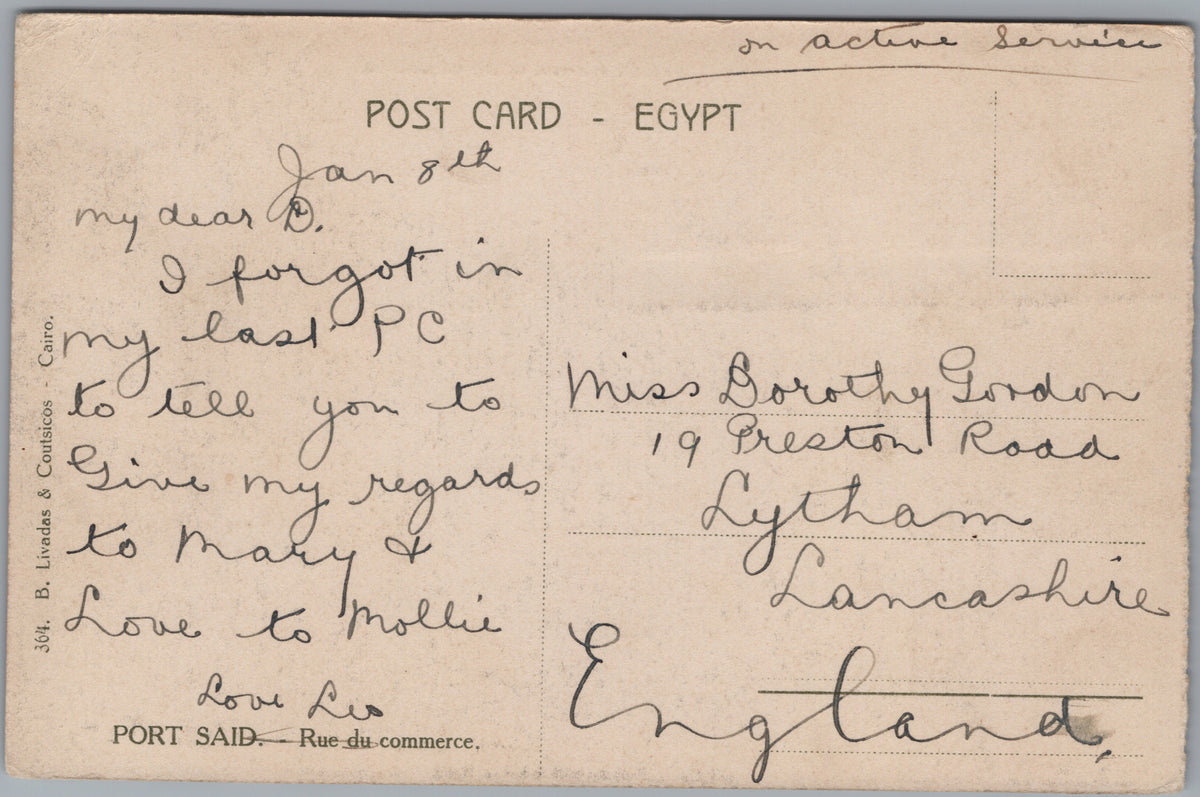 on active Service
POST CARD - EGYPT
Jan 8th
my dear D.
I forgot in
my last PC
to tell you to
Give my regards
to Mary &
Love to Mollie
Love Les
PORT SAID. - Rue du commerce.
364. B. Livadas & Coutsicos - Cairo.
Miss Dorothy Gordon
19 Preston Road
Lytham
Lancashire
England,